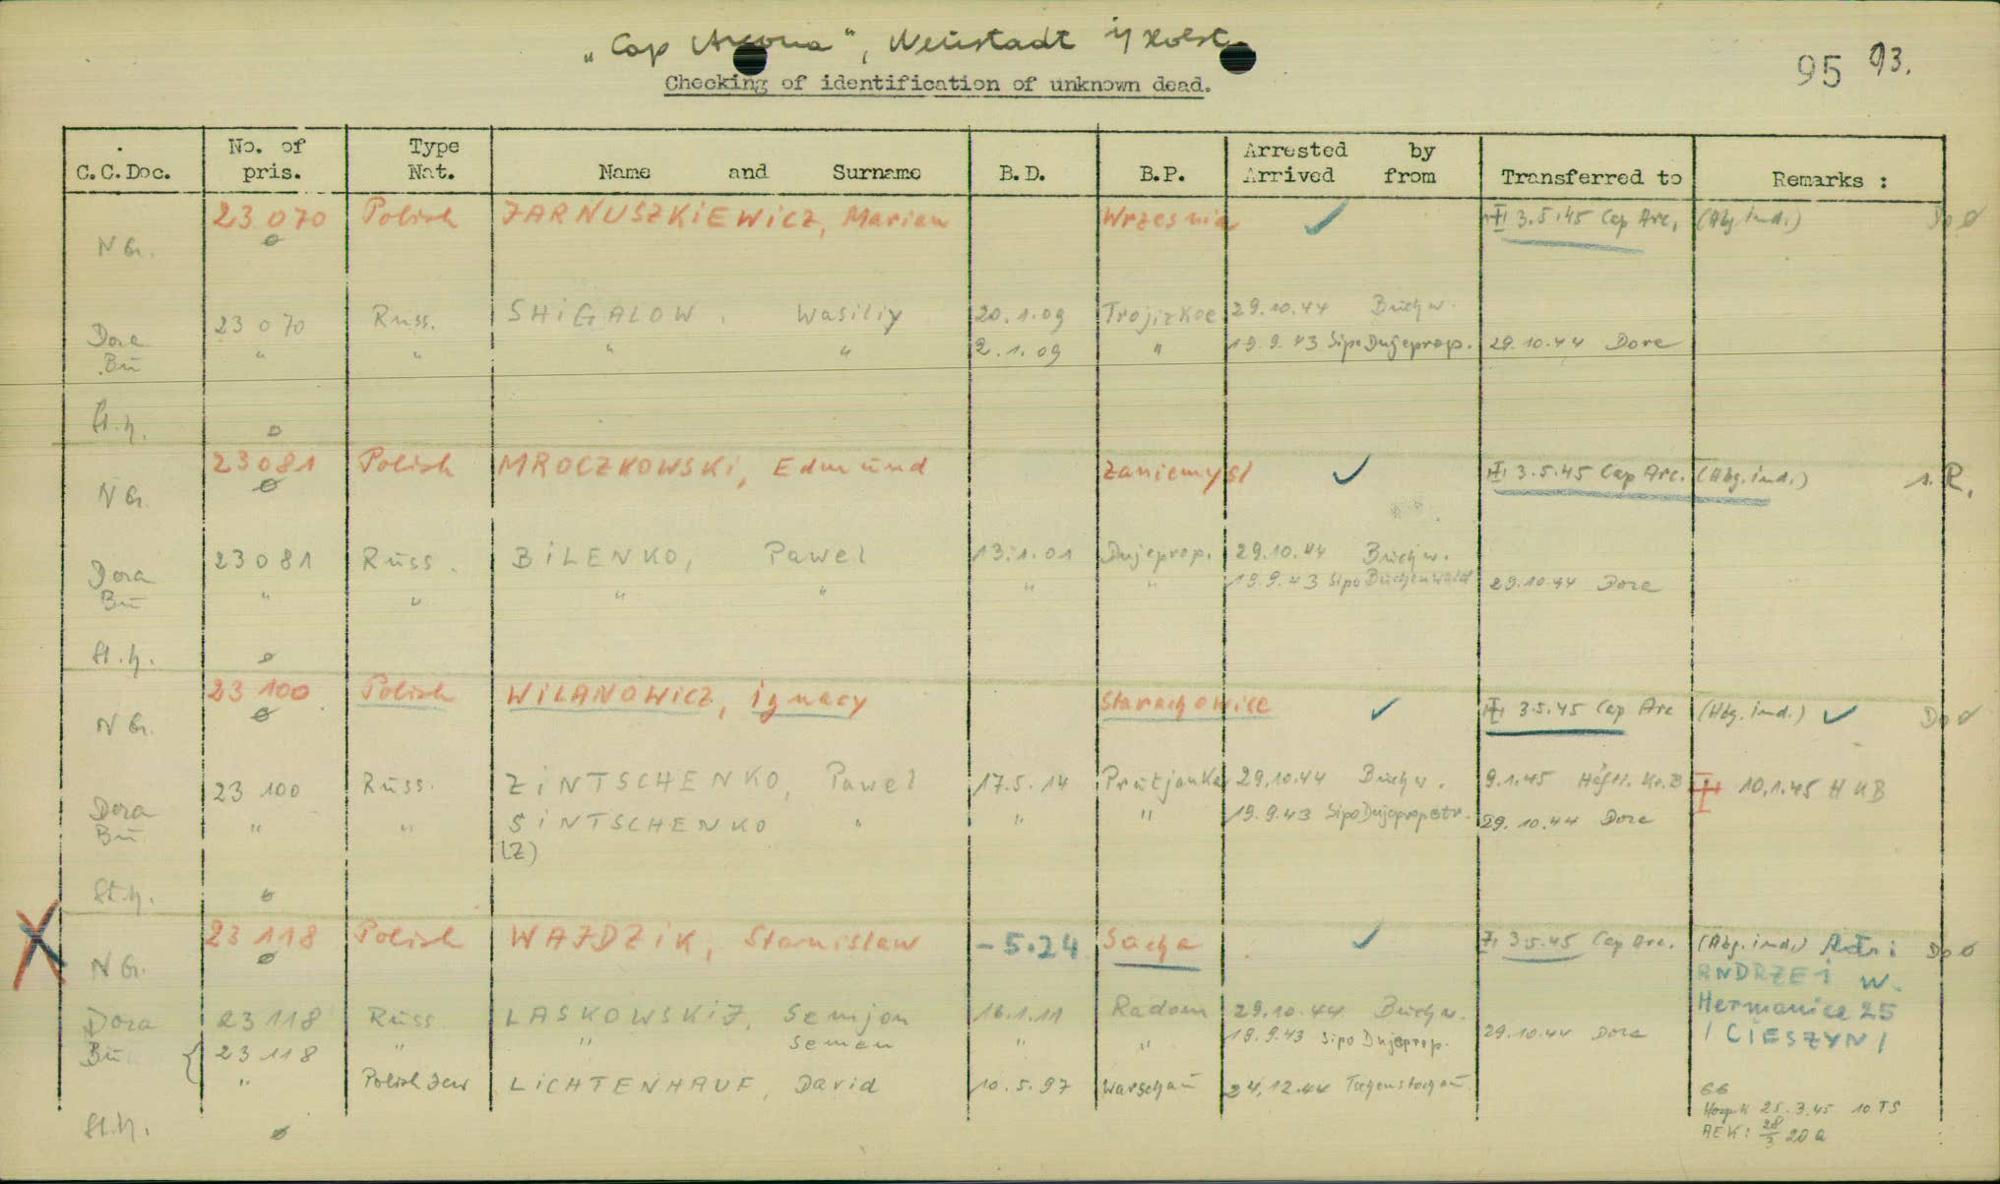 „Cap Arcona“, Neustadt i/Holst.
Checking of identification of unknown dead.
95 93.
C.C.Doc. No. of pris. Type Nat. Name and Surname B.D. B.P. Arrested by Arrived from Transferred to Remarks :
N G. 23 070 Polish JARNUSZKiEWiCZ, Marian Wrzesnia ✓ 3.5.45 Cap Arc. (Abg. ind.) Do
Dora 23 070 Russ. SHiGALOW, Wasiliy 20.1.09 Trojizkoe 29.10.44 Buchw.
Bu " " " " 2.1.09 " 19.9.43 Sipo Dnjeprop. 29.10.44 Dora
St.h. ø
N G. 23081 Polish MROCZKOWSKi, Edmund Zaniemysl ✓ 3.5.45 Cap Arc. (Abg. ind.) s.R.
Dora 23081 Russ. BiLENKO, Pawel 13.1.01 Dnjeprop. 29.10.44 Buchw.
Bu " " " " " " 19.9.43 Sipo Buchenwald 29.10.44 Dora
St.h. ø
N G. 23 100 Polish WiLANOWiCZ, ignacy Starachowice ✓ 3.5.45 Cap Arc (Abg. ind.) ✓ Do
Dora 23 100 Russ. ZiNTSCHENKO, Pawel 17.5.14 Prutjanka 29.10.44 Buchw. 9.1.45 Häftl. Kr.B 10.1.45 HKB
Bu " " SiNTSCHENKO " " " 19.9.43 Sipo Dnjepropetr. 29.10.44 Dora
(Z)
St.h. ø
X N G. 23 118 Polish WAJDZiK, Stanislaw -5.24 Socha ✓ 3.5.45 Cap Arc. (Abg. ind.) Adr: Do
ANDRZEi W.
Hermanice 25
/ CiESZYN /
Dora 23118 Russ LASKOWSKiJ, Semjon 16.1.11 Radom 29.10.44 Buchw.
Bu { 23 118 " " Semen " " 19.9.43 Sipo Dnjeprop. 29.10.44 Dora
" Polish Jew LiCHTENHAUF, David 10.5.97 Warschau 24.12.44 Tschenstochau 66
25.3.45 10 TS
AEK: 28/3 20 a
St.h. ø